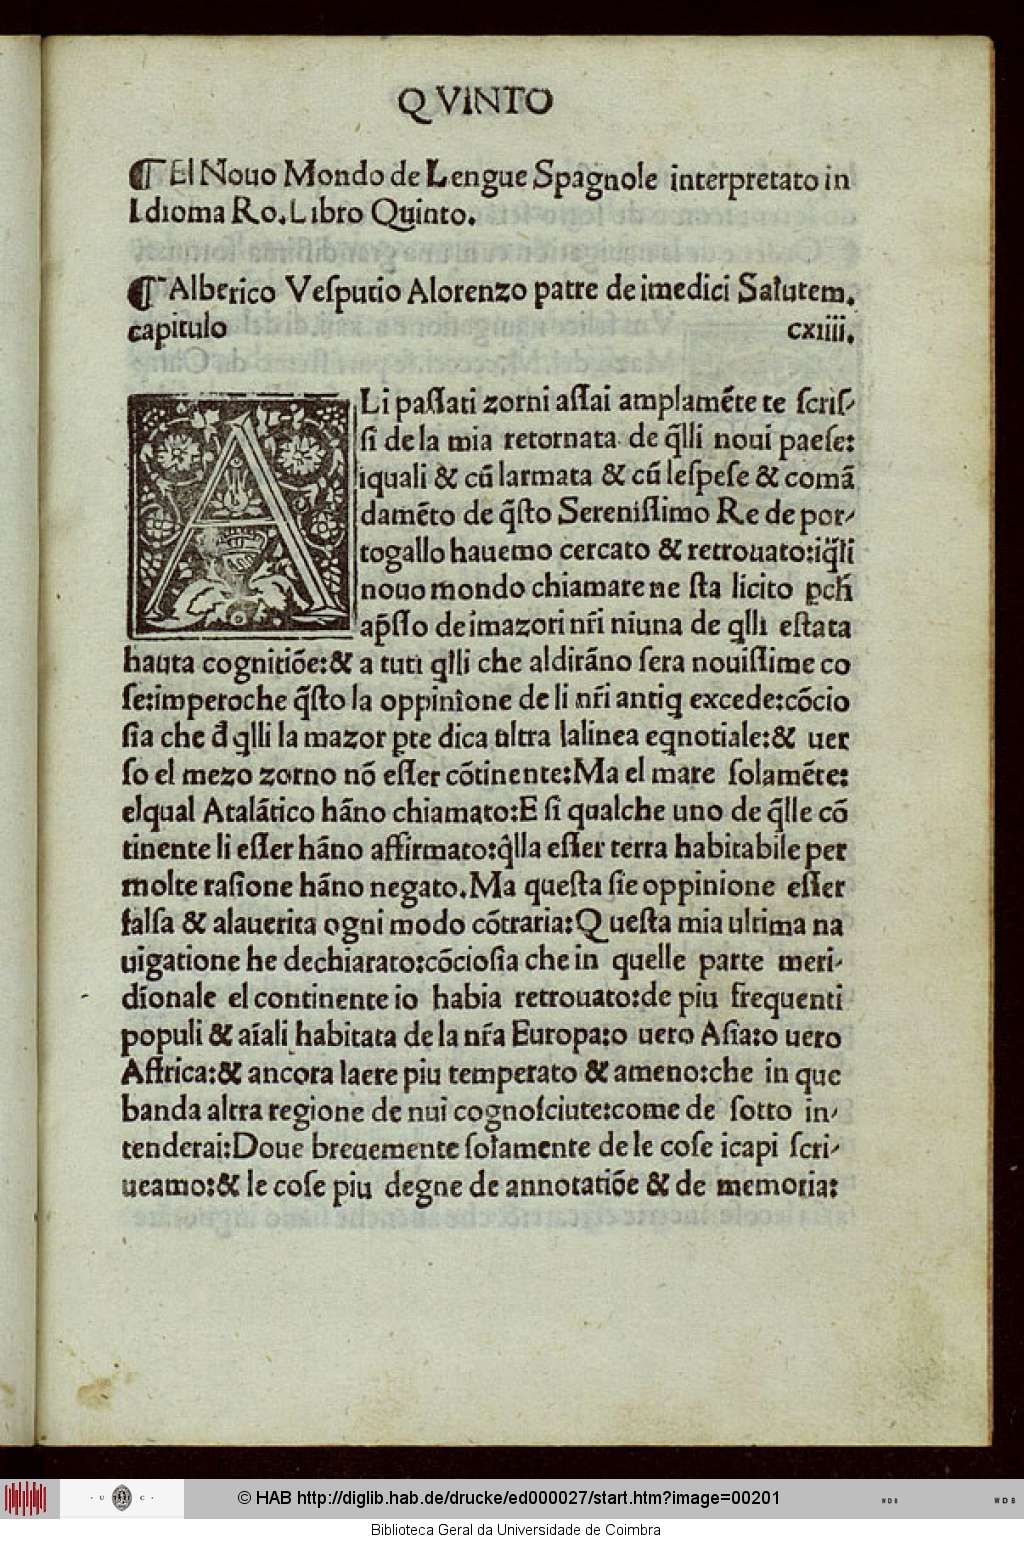 QVINTO
¶ El Nouo Mondo de Lengue Spagnole interpretato in
Idioma Ro. Libro Quinto.
¶ Alberico Vesputio Alorenzo patre de imedici Salutem.
capitulo cxiiii.
ALi paſſati zorni aſſai amplamẽte te ſcriſ-
ſi de la mia retornata de q̃lli noui paeſe:
iquali & cũ larmata & cũ leſpeſe & comã
damẽto de q̃ſto Sereniſſimo Re de por-
togallo hauemo cercato & retrouato: iq̃li
nouo mondo chiamare ne ſta licito ꝑch̃
ap̃ſſo de imazori nr̃i niuna de q̃lli eſtata
hauta cognitiõe: & a tuti q̃lli che aldirãno ſera nouiſſime co
ſe: imperoche q̃ſto la oppinione de li nr̃i antiq excede: cõcio
ſia che đ q̃lli la mazor ꝑte dica ultra lalinea eqnotiale: & uer
ſo el mezo zorno nõ eſſer cõtinente: Ma el mare ſolamẽte:
elqual Atalãtico hãno chiamato: E ſi qualche uno de q̃lle cõ
tinente li eſſer hãno affirmato: q̃lla eſſer terra habitabile per
molte raſione hãno negato. Ma queſta ſie oppinione eſſer
falſa & alauerita ogni modo cõtraria: Queſta mia ultima na
uigatione he dechiarato: cõcioſia che in quelle parte meri-
dionale el continente io habia retrouato: de piu frequenti
populi & aĩali habitata de la nr̃a Europa: o uero Aſia: o uero
Affrica: & ancora laere piu temperato & ameno: che in que
banda altra regione de nui cognoſciute: come de ſotto in-
tenderai: Doue breuemente ſolamente de le coſe icapi ſcri-
ueamo: & le coſe piu degne de annotatiõe & de memoria:
© HAB http://diglib.hab.de/drucke/ed000027/start.htm?image=00201
· U C ·
WDB
WDB
Biblioteca Geral da Universidade de Coimbra